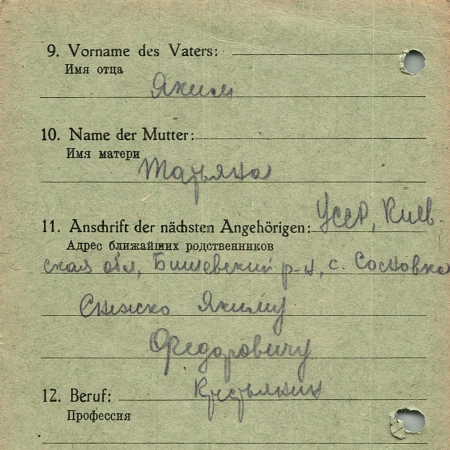 9. Vorname des Vaters:
Имя отца
Яким
10. Name der Mutter:
Имя матери
Татьяна
11. Anschrift der nächsten Angehörigen: УССР, Киев-
Адрес ближайших родственников
ская обл, Бышевский р-н, с. Сосновка
Снежко Якиму
Федоровичу
12. Beruf: Крестьянин
Профессия